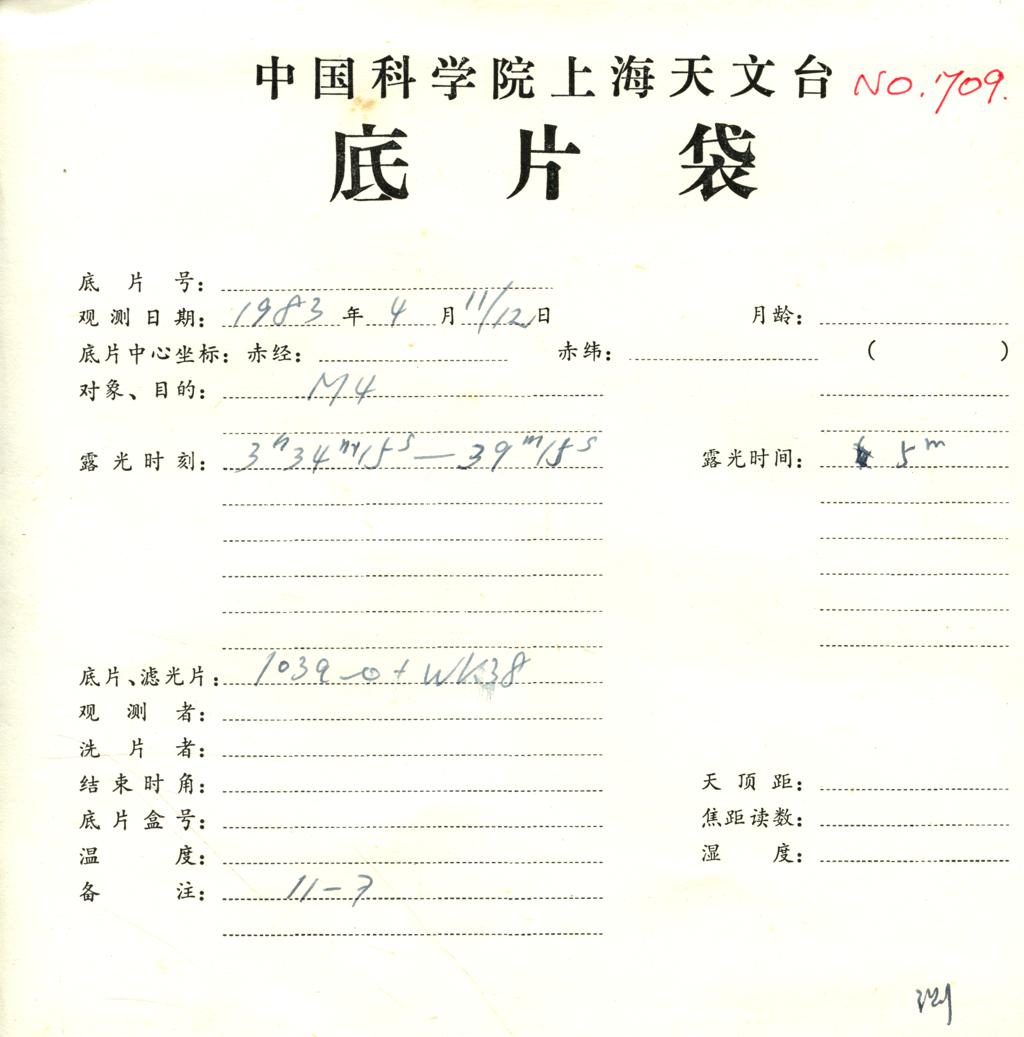 中国科学院上海天文台 NO.709.
底片袋
底片号：
观测日期：1983年4月11/12日 月龄：
底片中心坐标：赤经： 赤纬： （ ）
对象、目的：M4
露光时刻：3h34m15s—39m15s 露光时间：5m
底片、滤光片：103a-o+WK38
观测者：
洗片者：
结束时角： 天顶距：
底片盒号： 焦距读数：
温度： 湿度：
备注：11-7